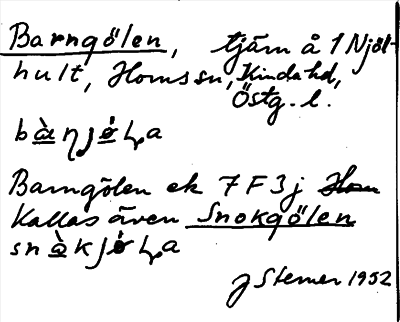 Barngölen, tjärn å 1 Njal-
hult, Horns sn, Kinda hd,
Östg. l.
bàŋjö́ɫa
Barngölen ek 7F3j
Kallas även Snokgölen
snàkjö́ɫa
J Sterner 1952